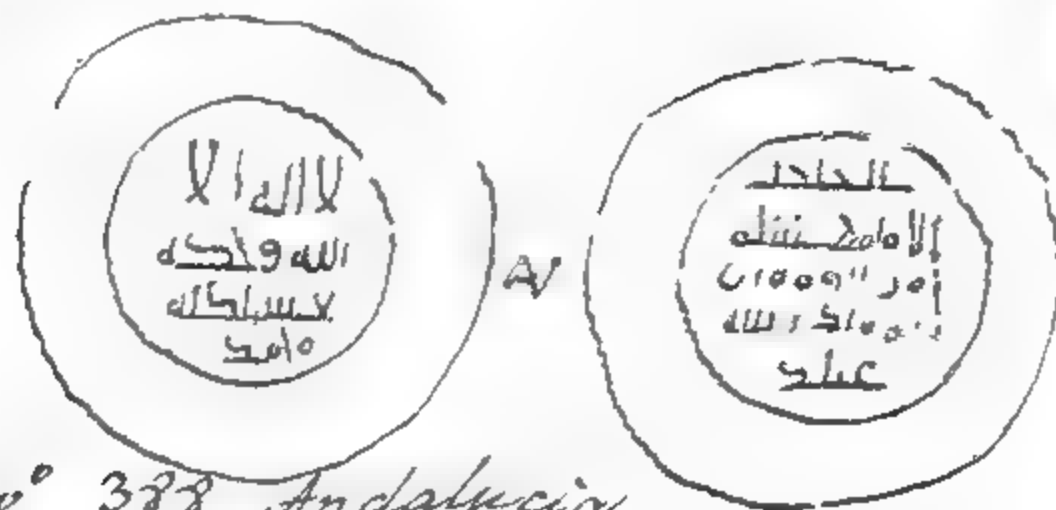 لا اله الا
الله وحده
لا شريك له
عامر
AV
الحاجب
الامام هشام
امير المومنين
المويد بالله
عبد الملك
Nº 388 Andalucia